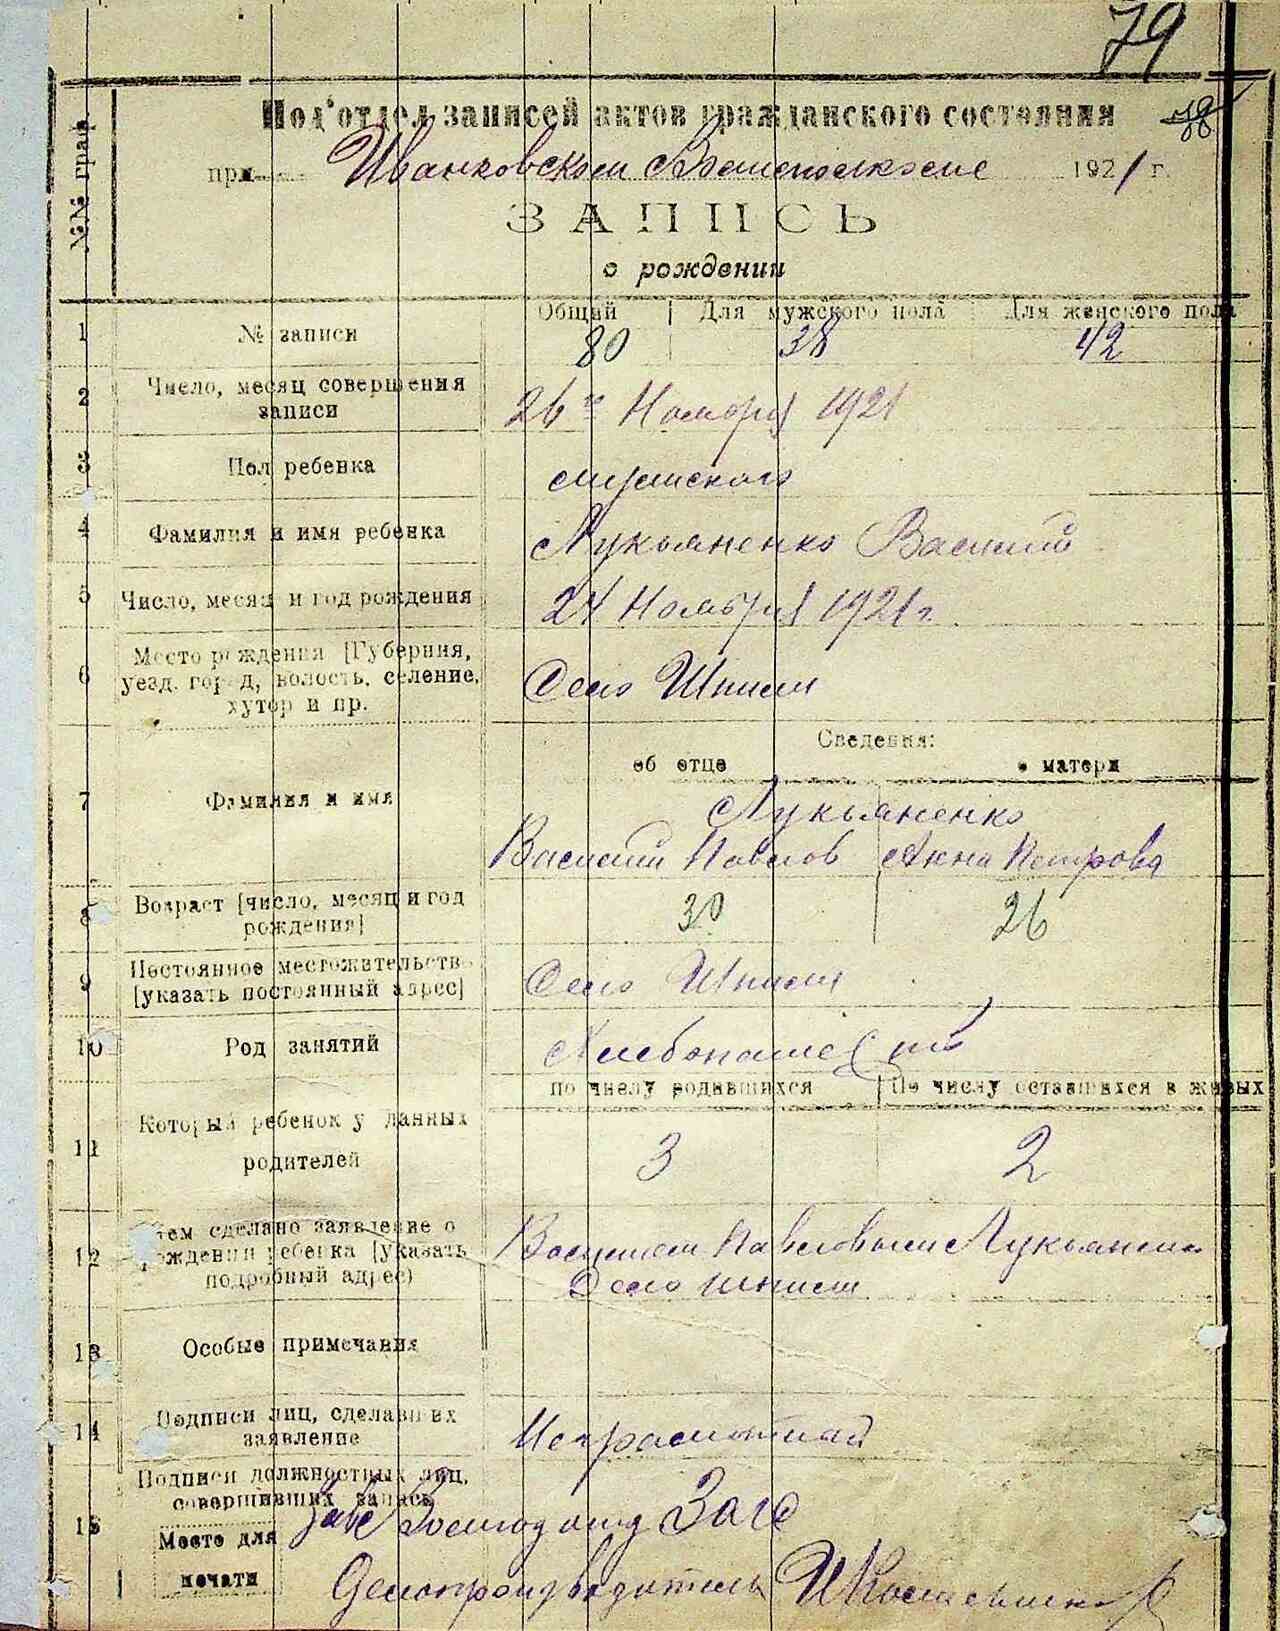 79
78
№№ граф
Под'отдел записей актов гражданского состояния
при Иванковском Волисполкоме 1921 г.
ЗАПИСЬ
о рождении
Общий Для мужского пола Для женского пола
1 № записи 80 38 42
2 Число, месяц совершения
записи
26го Ноября 1921
3 Пол ребенка мужского
4 Фамилия и имя ребенка Лукьяненко Василий
5 Число, месяц и год рождения 24 Ноября 1921 г.
6 Место рождения [Губерния,
уезд. город, волость. селение,
хутор и пр.
Село Шпили
Сведения:
об отце о матери
7 Фамилия и имя Лукьяненко
Василий Павлов Анна Петрова
8 Возраст [число, месяц и год
рождения]
30 26
9 Постоянное местожительство
[указать постоянный адрес]
Село Шпили
10 Род занятий
по числу родившихся По числу оставшихся в живых
11 Который ребенок у данных
родителей
3 2
12 Кем сделано заявление о
рождении ребенка [указать
подробный адрес)
Василием Павловым Лукьяненко
Село Шпили
13 Особые примечания
14 Подписи лиц, сделавших
заявление
Неграмотный
15 Подписи должностных лиц,
совершивших запись
Зав Загс
Место для
печати
Делопроизводитель